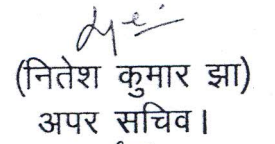 (नितेश कुमार झा)
अपर सचिव।